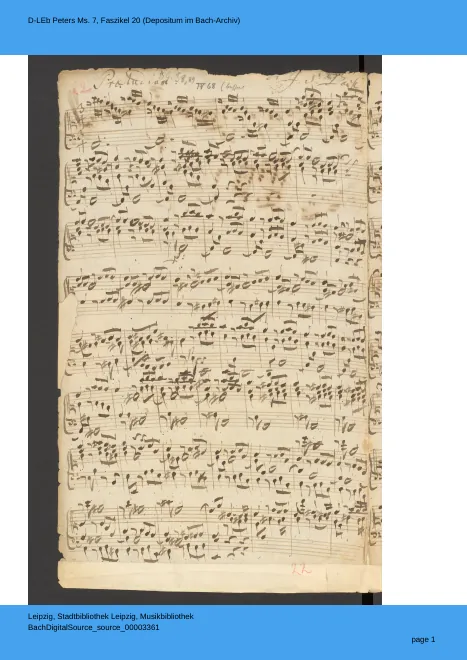 D-LEb Peters Ms. 7, Faszikel 20 (Depositum im Bach-Archiv)
22
Leipzig, Stadtbibliothek Leipzig, Musikbibliothek
BachDigitalSource_source_00003361
page 1